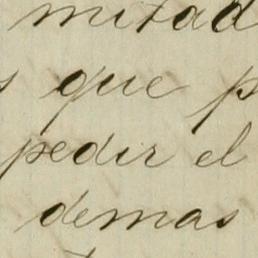 mitad
que
pedir el
demas